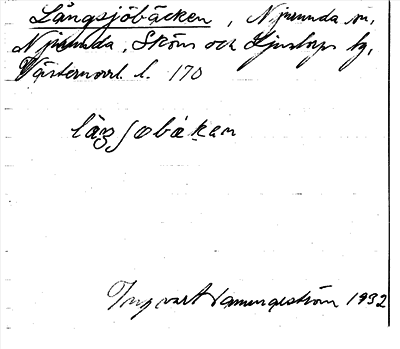 Långsjöbäcken, Njurunda sn,
Njurunda, Sköns och Ljustorps tg,
Västernorrl. l. 170
låŋʃobäkan
Ingvart 1932